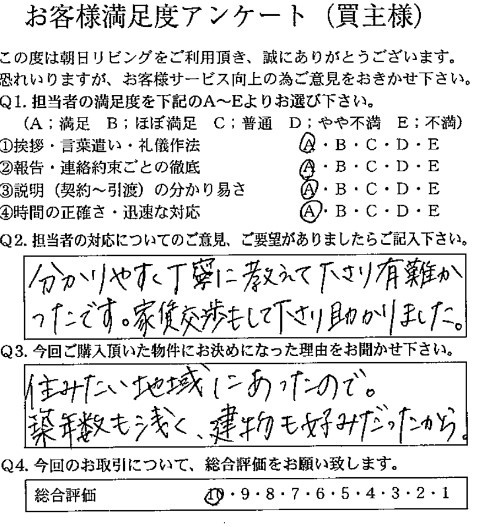 お客様満足度アンケート（買主様）
この度は朝日リビングをご利用頂き、誠にありがとうございます。
恐れいりますが、お客様サービス向上の為ご意見をおきかせ下さい。
Q1. 担当者の満足度を下記のA～Eよりお選び下さい。
（A；満足　B；ほぼ満足　C；普通　D；やや不満　E；不満）
①挨拶・言葉遣い・礼儀作法　A・B・C・D・E
②報告・連絡約束ごとの徹底　A・B・C・D・E
③説明（契約～引渡）の分かり易さ　A・B・C・D・E
④時間の正確さ・迅速な対応　A・B・C・D・E
Q2. 担当者の対応についてのご意見、ご要望がありましたらご記入下さい。
分かりやすく丁寧に教えて下さり有難か
ったです。家賃交渉もして下さり助かりました。
Q3. 今回ご購入頂いた物件にお決めになった理由をお聞かせ下さい。
住みたい地域にあったので。
築年数も浅く、建物も好みだったから。
Q4. 今回のお取引について、総合評価をお願い致します。
総合評価　10・9・8・7・6・5・4・3・2・1